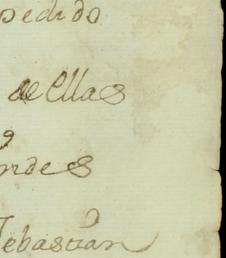 pedido
de Ellas
ndes
Sebastian